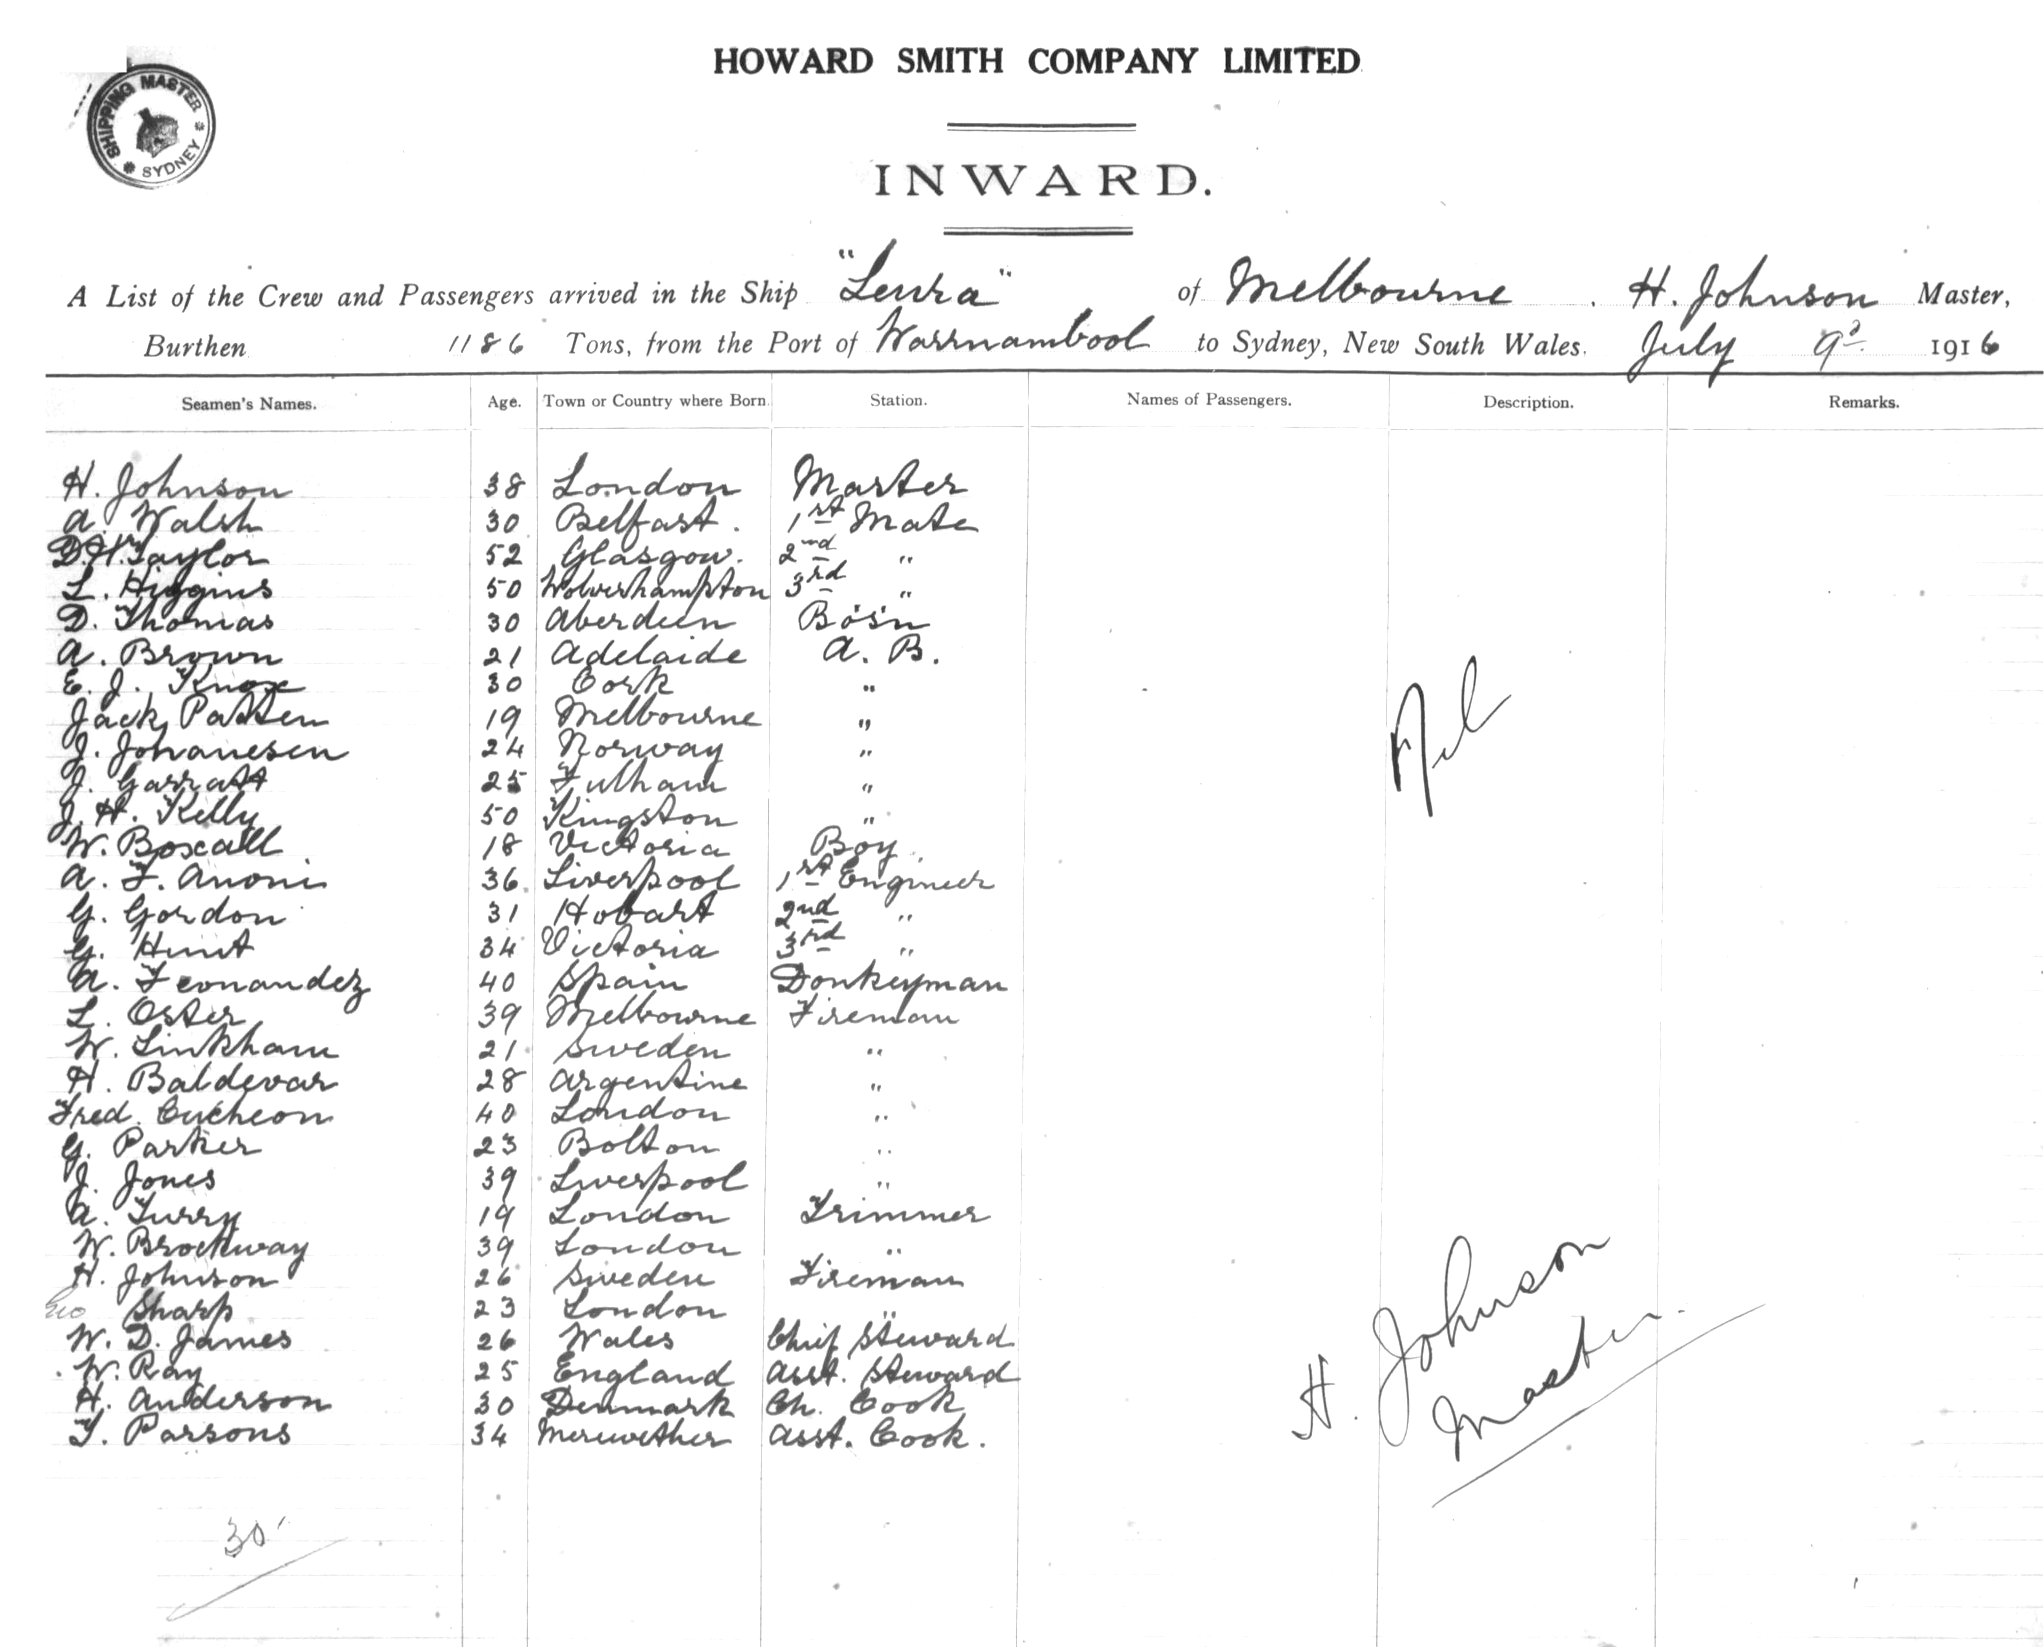 SHIPPING MASTER
SYDNEY
HOWARD SMITH COMPANY LIMITED
INWARD.
A List of the Crew and Passengers arrived in the Ship "Leura" of Melbourne. H. Johnson Master,
Burthen 1186 Tons, from the Port of Warrnambool to Sydney, New South Wales. July 9 1916
Seamen's Names. Age. Town or Country where Born. Station. Names of Passengers. Description. Remarks.
H. Johnson 38 London Master
A. Walsh 30 Belfast. 1st Mate
D.H. Taylor 52 Glasgow. 2nd "
L. Higgins 50 Wolverhampton 3rd "
D. Thomas 30 Aberdeen Bosn
A. Brown 21 Adelaide A. B.
E. J. Knox 30 Cork "
Jack Patten 19 Melbourne "
J. Johanesen 24 Norway "
J. Garratt 25 Fulham "
J. H. Kelly 50 Kingston "
W. Boxall 18 Victoria Boy
A. F. Anoni 36 Liverpool 1st Engineer
G. Gordon 31 Hobart 2nd "
G. Hunt 34 Victoria 3rd "
A. Fernandez 40 Spain Donkeyman
L. Oster 39 Melbourne Fireman
W. Linkham 21 Sweden "
H. Baldevar 28 Argentine "
Fred. Cucheon 40 London "
G. Parker 23 Bolton "
J. Jones 39 Liverpool "
A. Turry 19 London Trimmer
W. Brockway 39 London "
H. Johnson 26 Sweden Fireman
Geo Sharp 23 London "
W. D. James 26 Wales Chief Steward
W. Ray 25 England Asst. Steward
H. Anderson 30 Denmark Ch. Cook
T. Parsons 34 Merewether Asst. Cook.
Nil
H. Johnson
Master.
30